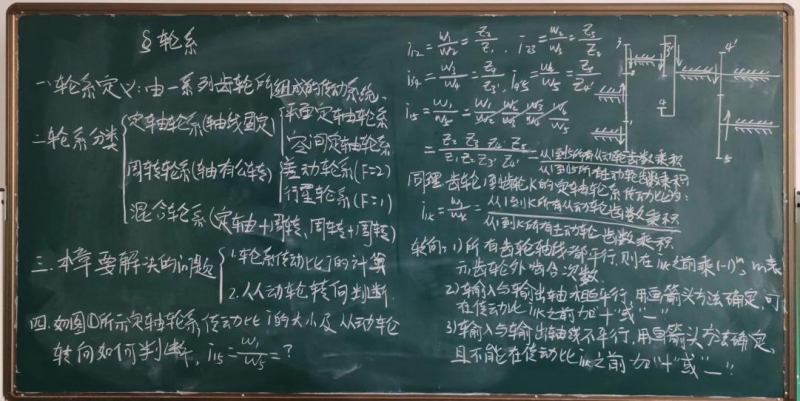 § 轮系
一、轮系定义：由一系列齿轮所组成的传动系统。
二、轮系分类
定轴轮系(轴线固定)
平面定轴轮系
空间定轴轮系
周转轮系(轴有公转)
差动轮系(F=2)
行星轮系(F=1)
混合轮系(定轴+周转,周转+周转)
三.本章要解决的问题
1.轮系传动比i的计算
2.从动轮转向判断.
四.如图①所示定轴轮系,传动比i的大小及从动轮
转向如何判断, i₁₅=w₁/w₅=?
i₁₂=w₁/w₂=Z₂/Z₁, i₂₃=w₂/w₃=Z₃/Z₂
i₃'₄=w₃/w₄=Z₄/Z₃', i₄'₅=w₄/w₅=Z₅/Z₄'
i₁₅=w₁/w₅=w₁/w₂ w₂/w₃ w₃/w₄ w₄/w₅
=Z₂ Z₃ Z₄ Z₅/Z₁ Z₂ Z₃' Z₄'=从1到5所有从动轮齿数乘积/从1到5所有主动轮齿数乘积
同理齿轮1到齿轮K的定轴轮系传动比为:
i₁ₖ=w₁/wₖ=从1到K所有从动轮齿数乘积/从1到K所有主动轮齿数乘积
转向: 1)所有齿轮轴线都平行,则在i₁ₖ之前乘(-1)ᵐ, m表
示齿轮外啮合次数.
2)输入与输出轴相互平行,用画箭头方法确定,可
在传动比i₁ₖ之前加"+"或"—"
3)输入与输出轴线不平行,用画箭头方法确定,
且不能在传动比i₁ₖ之前加"+"或"—".
3 3' 4'
2
4
1 5